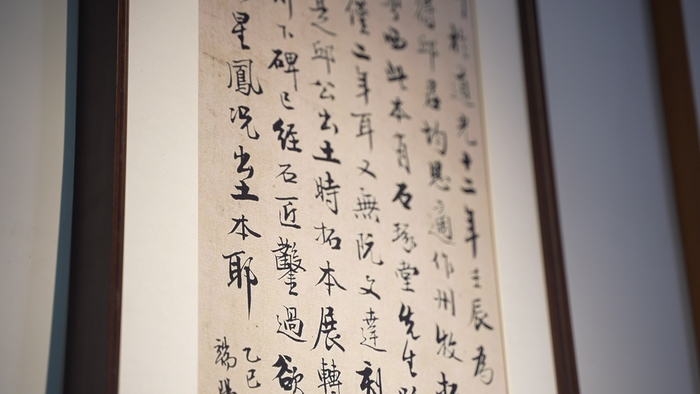 於道光十二年壬辰為
邱君均恩適作州牧
此本有石琢堂先生
僅二年耳又無阮文達刻
是邱公出土時拓本展轉
下碑已經石匠鑿過欲
星鳳況出土本耶
乙巳
端陽